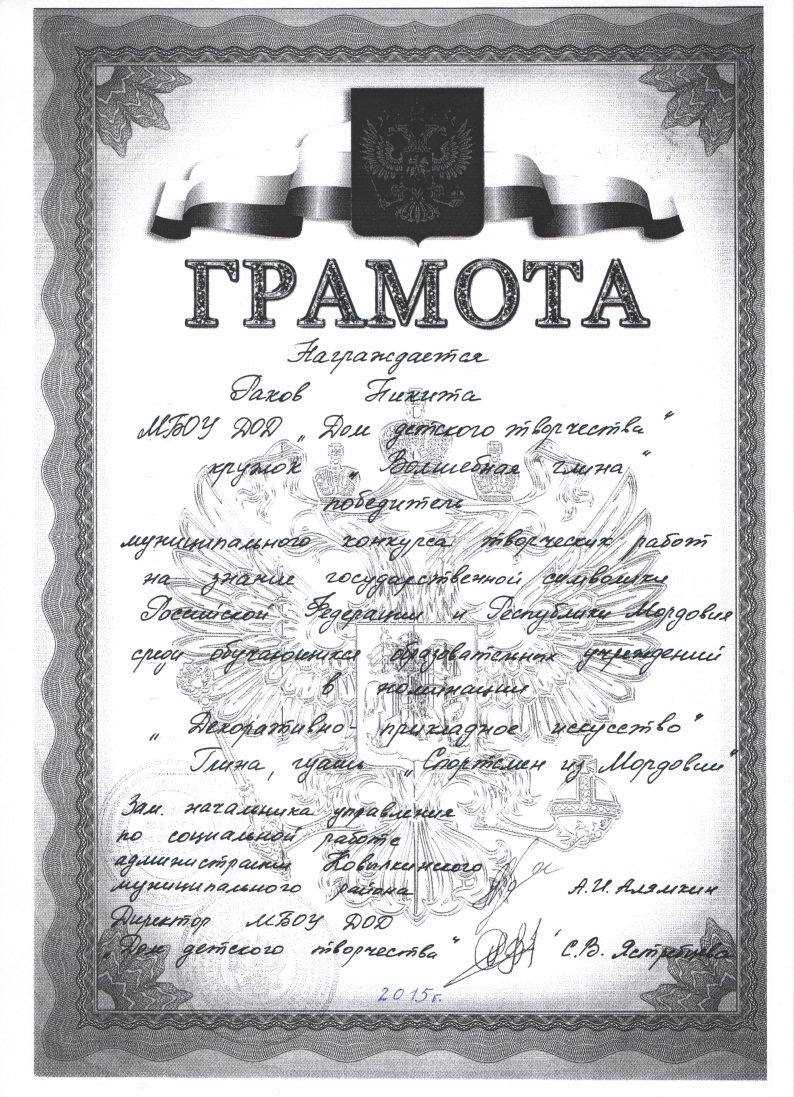 ГРАМОТА
Награждается
Раков Никита
МБОУ ДОД „Дом детского творчества"
кружок „Волшебная глина"
победитель
муниципального конкурса творческих работ
на знание государственной символики
Российской Федерации и Республики Мордовия
среди обучающихся образовательных учреждений
в номинации
„Декоративно-прикладное искусство"
Глина, гуашь „Спортсмен из Мордовии"
Зам. начальника управления
по социальной работе
администрации Ковылкинского
муниципального района А.И. Алямкин
Директор МБОУ ДОД
„Дом детского творчества" С.В. Ястребцева
2015г.